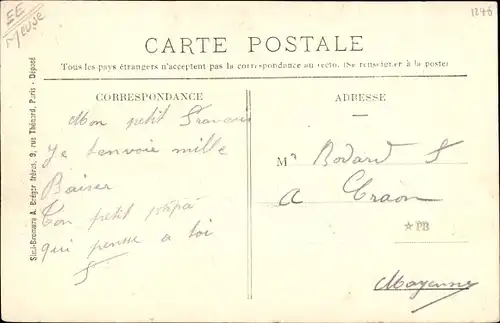 EE
Meuse
1248
CARTE POSTALE
Tous les pays étrangers n'acceptent pas la correspondance au recto. (Se renseigner à la poste)
CORRESPONDANCE
ADRESSE
Simi-Bromure A. Breger frères, 9, rue Thénard, Paris - Déposé
Mon petit Francois
Je tenvoie mille
Baiser
Ton petit papa
qui pense a toi
S
Mr Bodard S
A Craon
☆PB
Mayenne